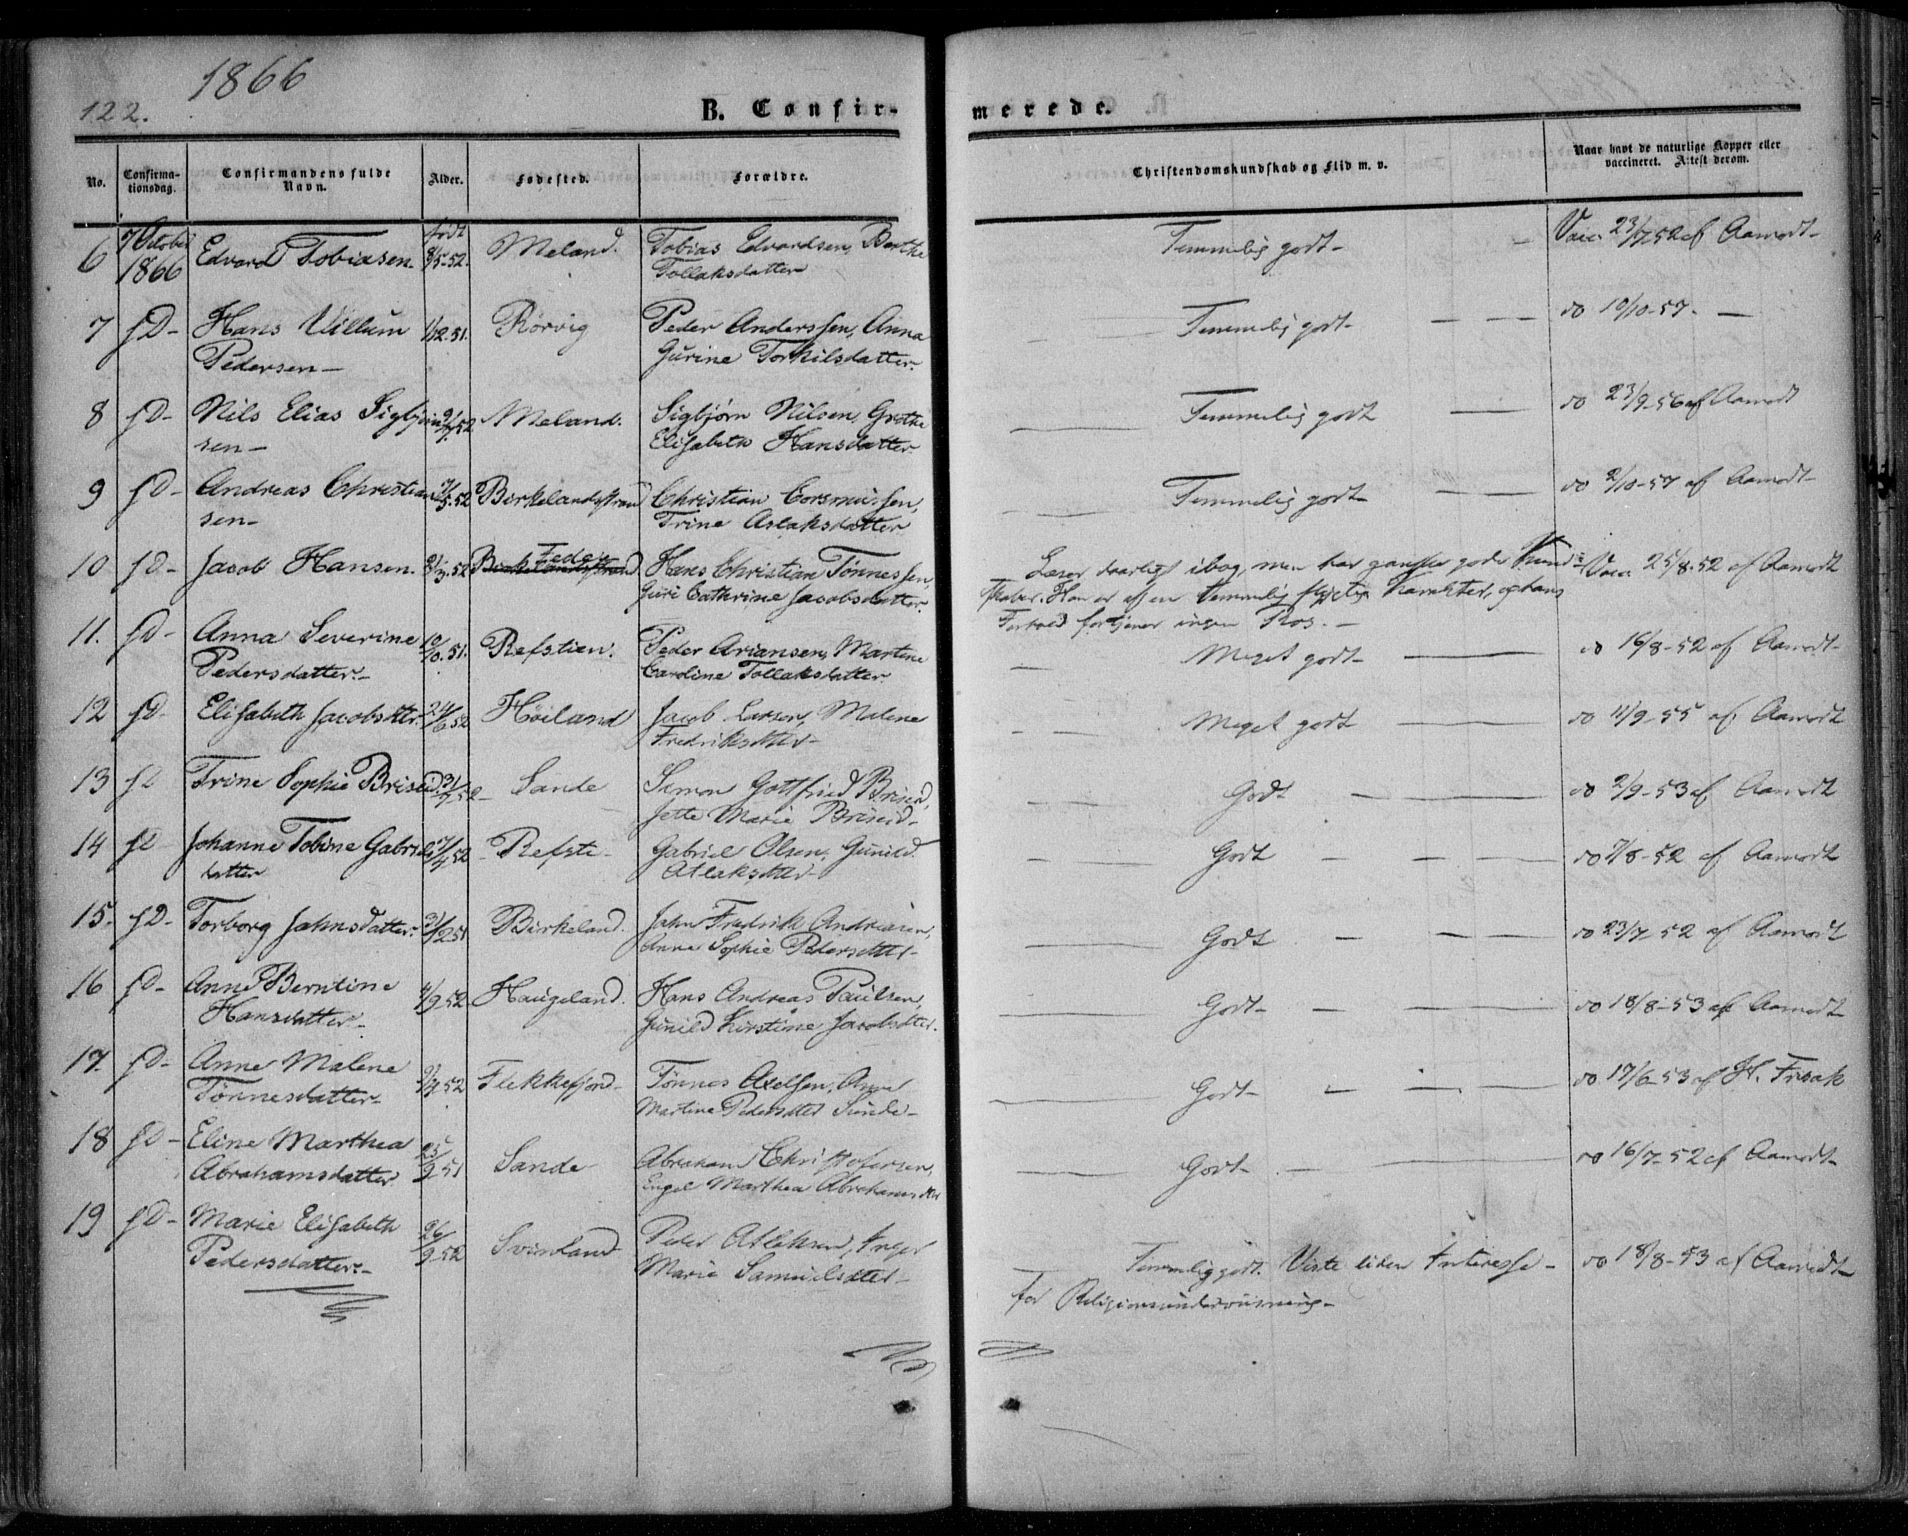 1866
122.
B. Confir-
merede.
No.
Confirma-
tionsdag.
Confirmandens fulde
Navn.
Alder.
Fødested.
Forældre.
Christendomskundskab og Flid m. v.
Naar havt de naturlige Kopper eller
vaccineret. Attest derom.
6 7 October 1866 Edvard Tobiasen født 8/5-52. Meland. Tobias Edvardsen, Berthe
Tollaksdatter
Temmelig godt - Vacc. 23/7 52 af Aamodt -
7 sD- Hans Villum 1/12 51. Rørvig Peder Anderssen, Anna
Pedersen - Gurine Torkilsdatter.
Temmelig godt - do 19/10-57. -
8 sD- Nils Elias Sigbjørn 52 Meland. Sigbjørn Nilsen, Grethe
sen - Elisabeth Hansdatter
Temmelig godt - do 23/9-56 af Aamodt
9 sD- Andreas Christian 5.52 Birkelandsstrand Christian Corsmussen,
sen - Trine Aslaksdatter
Temmelig godt - do 2/10-57 af Aamodt -
10 sD- Jacob Hansen. 52 Feda Hans Christian Tønnessen,
Guri Cathrine Jacobsdatter.
Læser daarligt ibog, men har ganske gode Kund-
skaber. Han er af en temmelig Karakter, og hans
Forhold fortjener ingen Ros. -
Vacc. 25/8-52 af Aamodt
11. sD- Anna Severine 51. Refstien. Peder Ariansen, Martine
Pedersdatter. - Caroline Tollaksdatter
Meget godt - do 16/8-52 af Aamodt -
12 sD- Elisabeth Jacobsdtr. 24/6 52 Høiland Jacob Larsen, Malene
Fredriksdtter -
Meget godt - do 11/9-55 af Aamodt
13 sD Trine Sophie Briseid 31/7 52 - Sande Simon Gottfried Briseid,
Jette Marie Briseid -
Godt - do 2/9-53 af Aamodt
14 sD Johanne Tobine Gabriels 52 - Refsti - Gabriel Olsen, Gunild
datter Aslaksdtter -
Godt - do 7/8-52 af Aamodt
15. sD- Torborg Jahnsdatter. 51 Birkeland. Jahn Fredrik Andreasen,
Anne Sophie Pedersdtter -
Godt - do 23/7-52 af Aamodt
16 sD- Anne Berntine 4/9 52 Haugeland. Hans Andreas Paulsen,
Hansdatter - Gunild Kirstine Jacobsdtter.
Godt - do 18/8-53 af Aamodt
17. sD- Anne Malene 52 Flekkefjord - Tønnes Axelsen, Anne
Tønnesdatter - Martine Pedersdtter Sunde -
Godt - do 17/6-53 af H. Frisak
18 sD- Eline Marthea 25/9 51 Sande Abraham Christofersen,
Abrahamsdatter Engel Marthea Abrahamsdtr
Godt - do 16/7-52 af Aamodt -
19 sD- Marie Elisabeth 26/9-52 Svinland Peder Atleksen, Inger
Pedersdatter. - Marie Samuelsdtter -
Temmelig godt. Viste liden Interesse -
for Religionsundervisning -
do 18/8-53 af Aamodt -